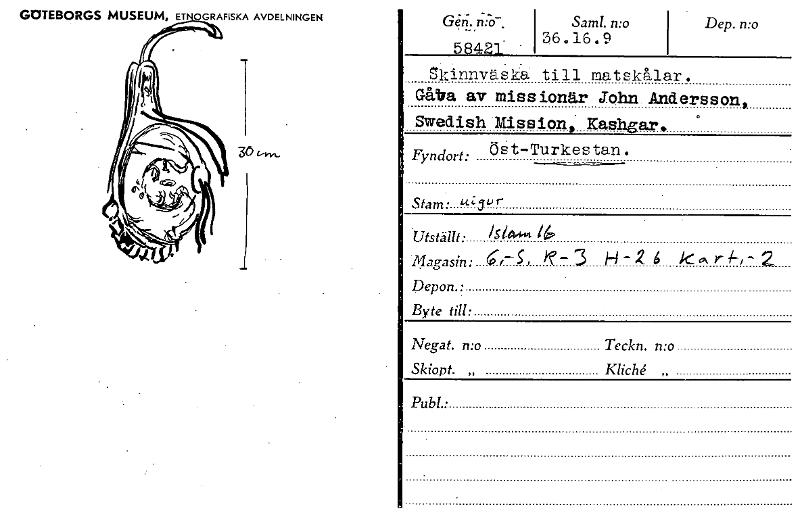 GÖTEBORGS MUSEUM, ETNOGRAFISKA AVDELNINGEN
30 cm
Gen. n:o
58421
Saml. n:o
36.16.9
Dep. n:o
Skinnväska till matskålar.
Gåva av missionär John Andersson,
Swedish Mission, Kashgar.
Fyndort: Öst-Turkestan.
Stam: uigur
Utställt: Islam 16
Magasin: G.-S. R-3 H-26 Kart.-2
Depon.:
Byte till:
Negat. n:o Teckn. n:o
Skiopt. „ Kliché „
Publ.: